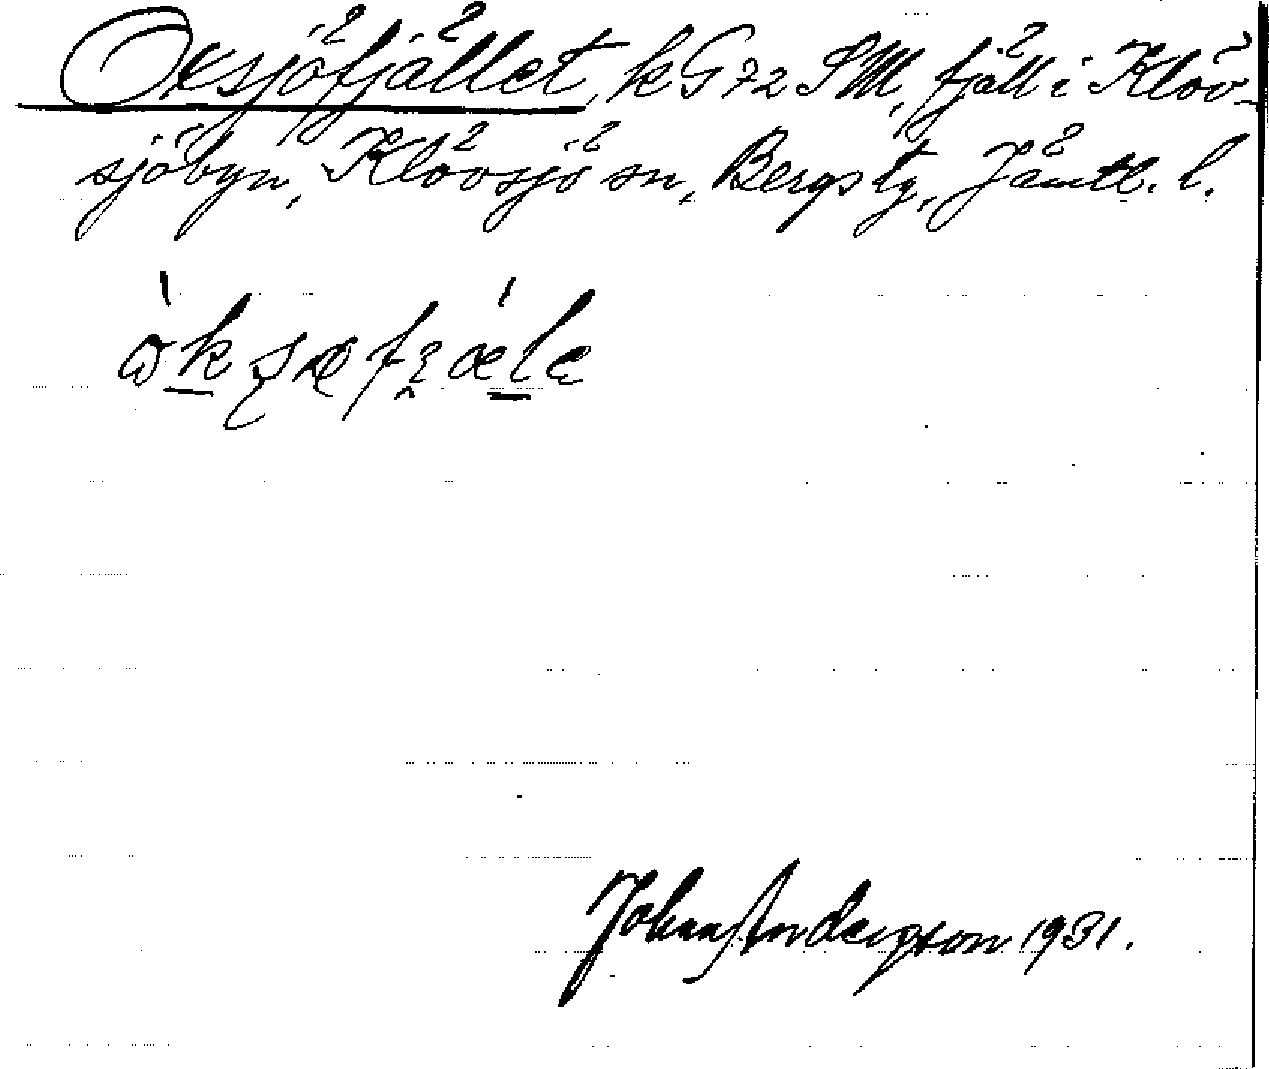 Oxsjöfjället, k G 72 SM, fjäll i Klöv-
sjöbyn, Klövsjö sn, Bergs tg, Jämtl. l.
Johan Anderson 1931.